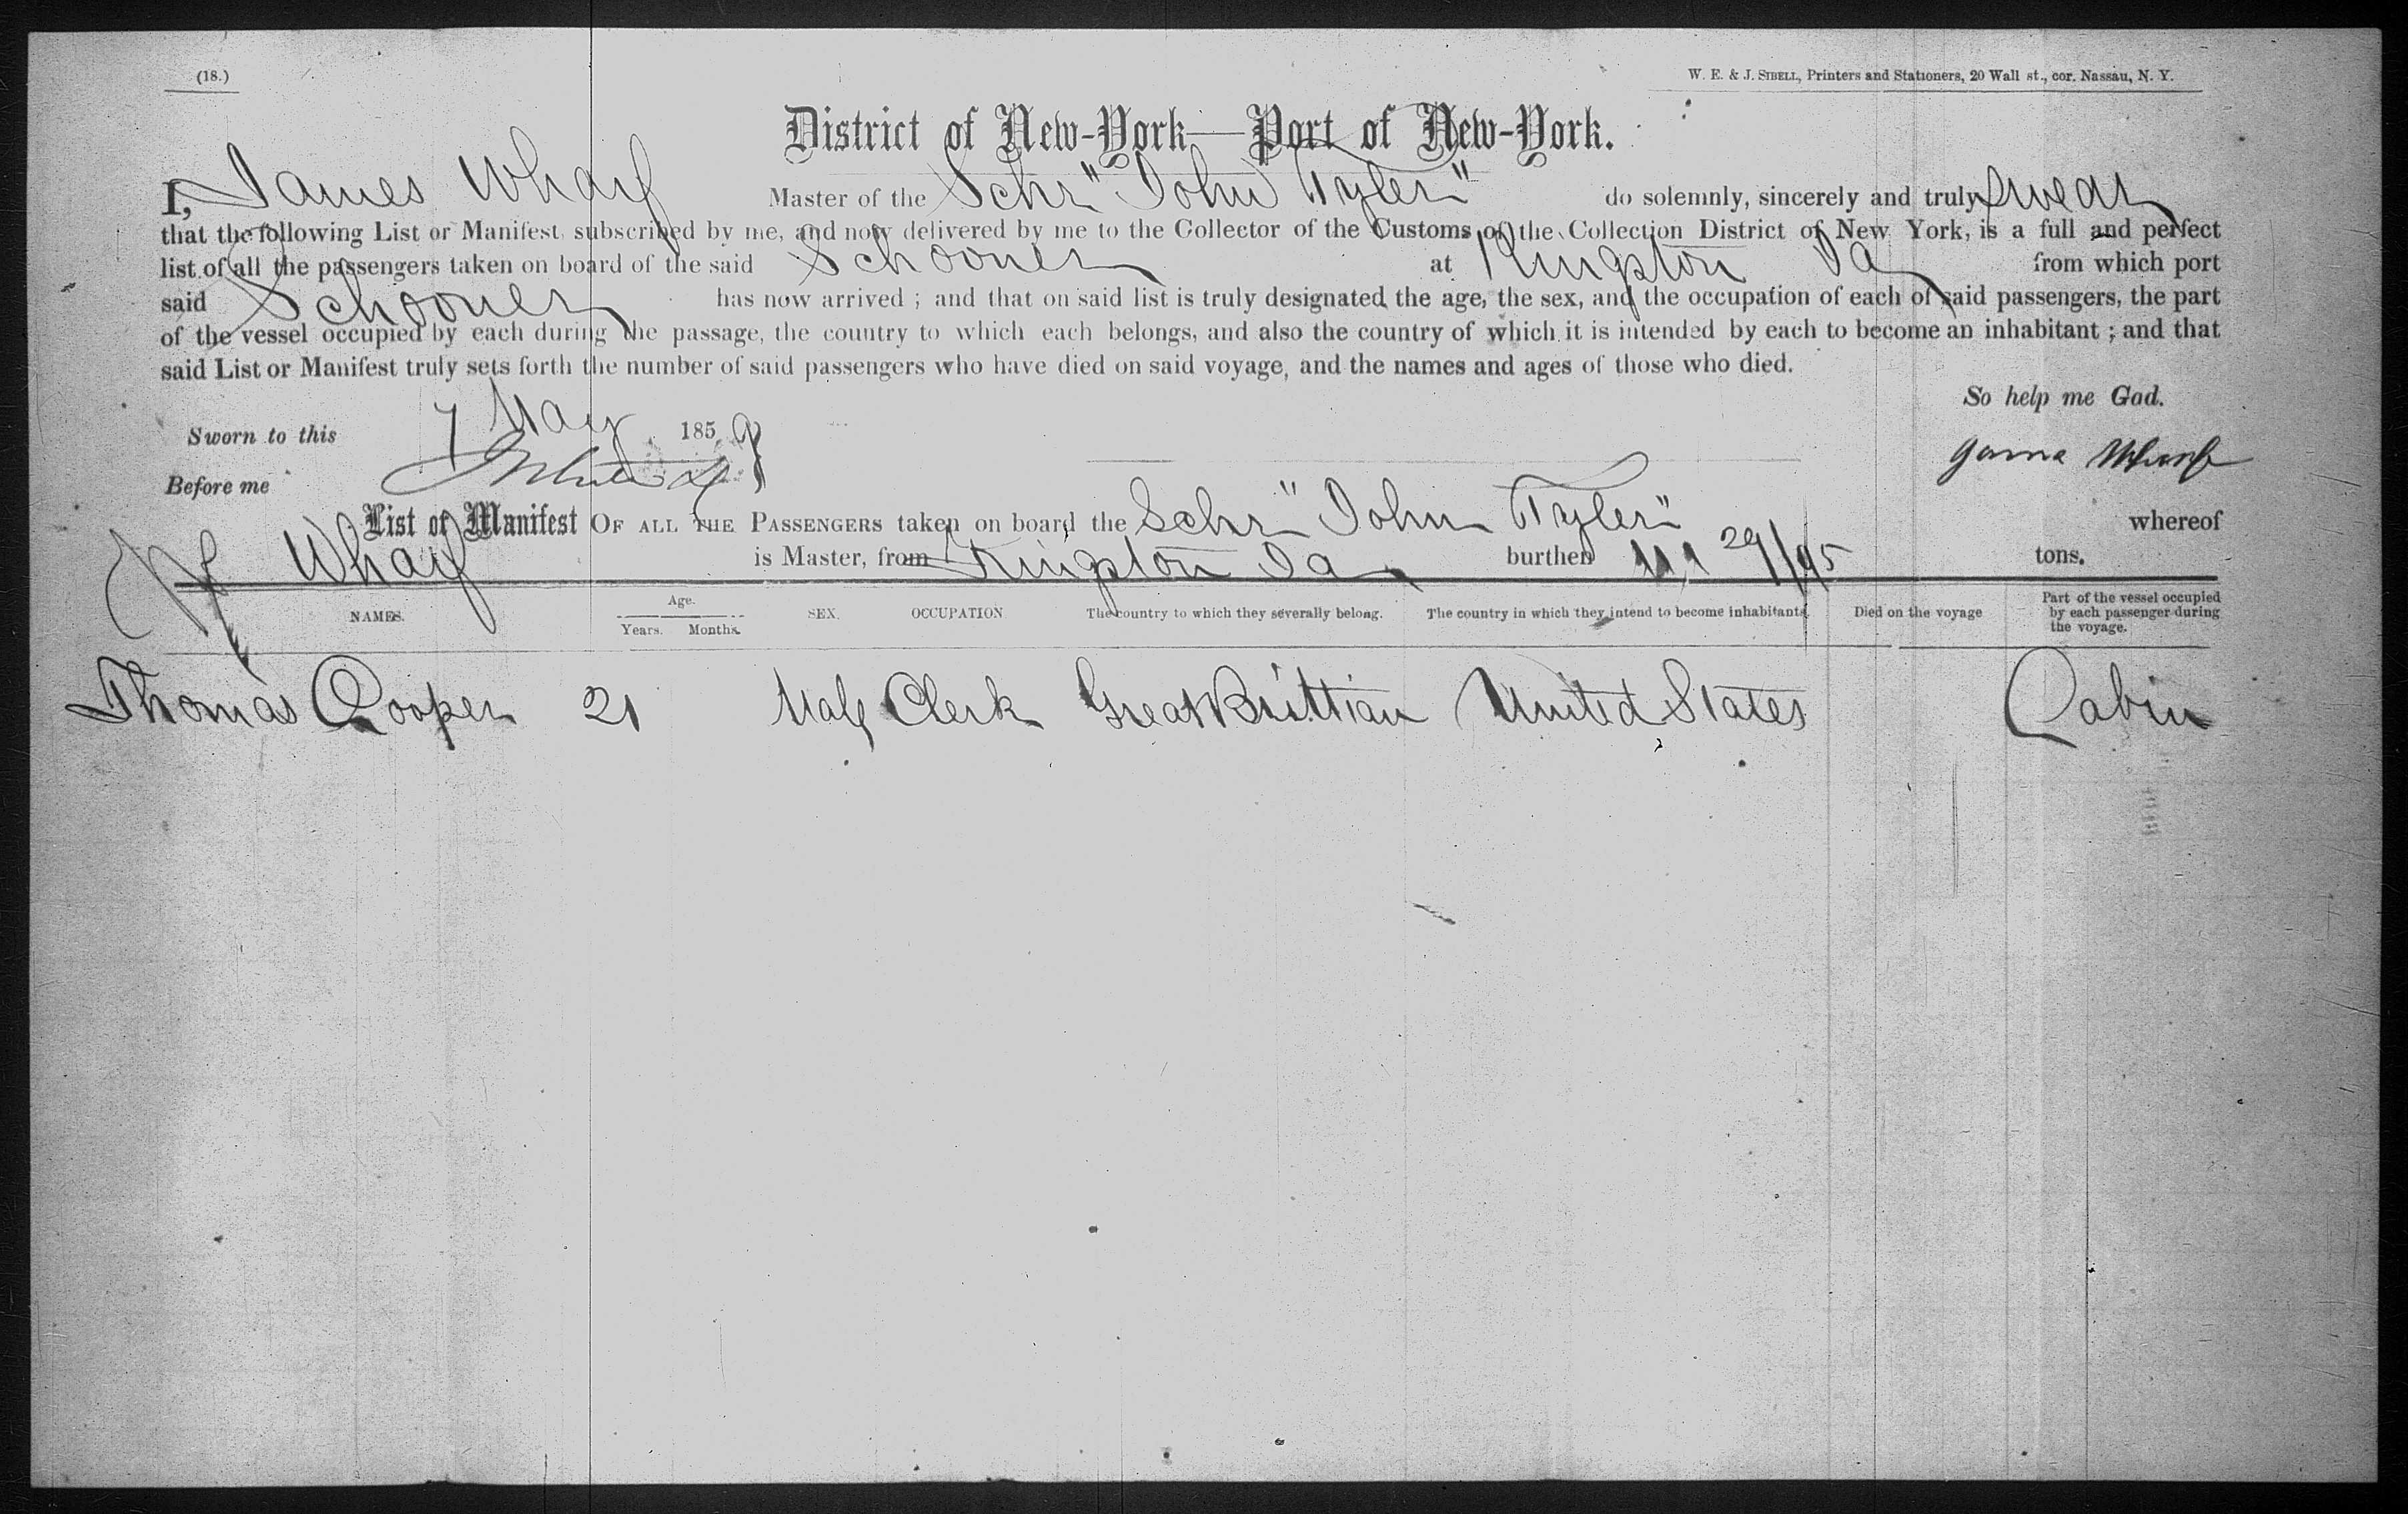 (18.)
W. E. & J. SIBELL, Printers and Stationers, 20 Wall st., cor. Nassau, N. Y.
District of New-York—Port of New-York.
I, James Wharf Master of the Schr "John Tyler" do solemnly, sincerely and truly swear
that the following List or Manifest, subscribed by me, and now delivered by me to the Collector of the Customs of the Collection District of New York, is a full and perfect
list of all the passengers taken on board of the said Schooner at Kingston Ja from which port
said Schooner has now arrived ; and that on said list is truly designated the age, the sex, and the occupation of each of said passengers, the part
of the vessel occupied by each during the passage, the country to which each belongs, and also the country of which it is intended by each to become an inhabitant ; and that
said List or Manifest truly sets forth the number of said passengers who have died on said voyage, and the names and ages of those who died.
So help me God.
Sworn to this 7 May 1859
Before me
James Wharf
List or Manifest OF ALL THE PASSENGERS taken on board the Schr "John Tyler" whereof
Wharf is Master, from Kingston Ja burthen 111 29/95 tons.
NAMES. Age. Years. Months. SEX. OCCUPATION. The country to which they severally belong. The country in which they intend to become inhabitants. Died on the voyage Part of the vessel occupied by each passenger during the voyage.
Thomas Cooper 21 Male Clerk Great Brittian United States Cabin